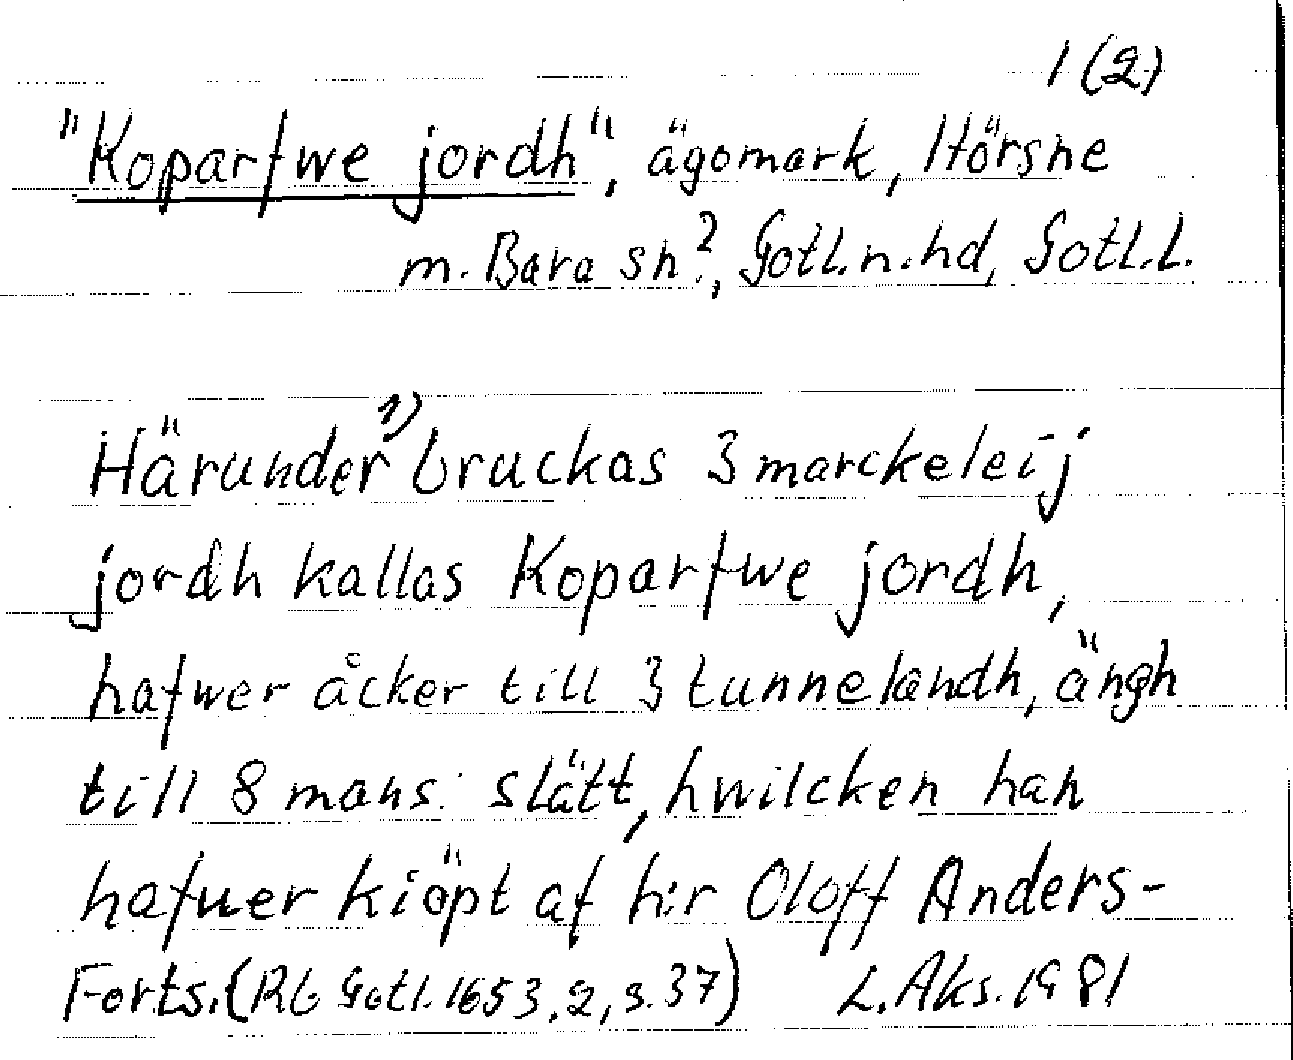 1(2)
"Koparfwe jordh", ägomark, Hörsne
m. Bara sn?, Gotl.n.hd, Gotl.l.
Härunder 1) bruckas 3 marckeleij
jordh kallas Koparfwe jordh,
hafwer åcker till 3 tunnelandh, ängh
till 8 mans: slätt, hwilcken han
hafuer kiöpt af h:r Oloff Anders-
Forts. (Rb Gotl. 1653, 2, s. 37) L. Aks. 1981